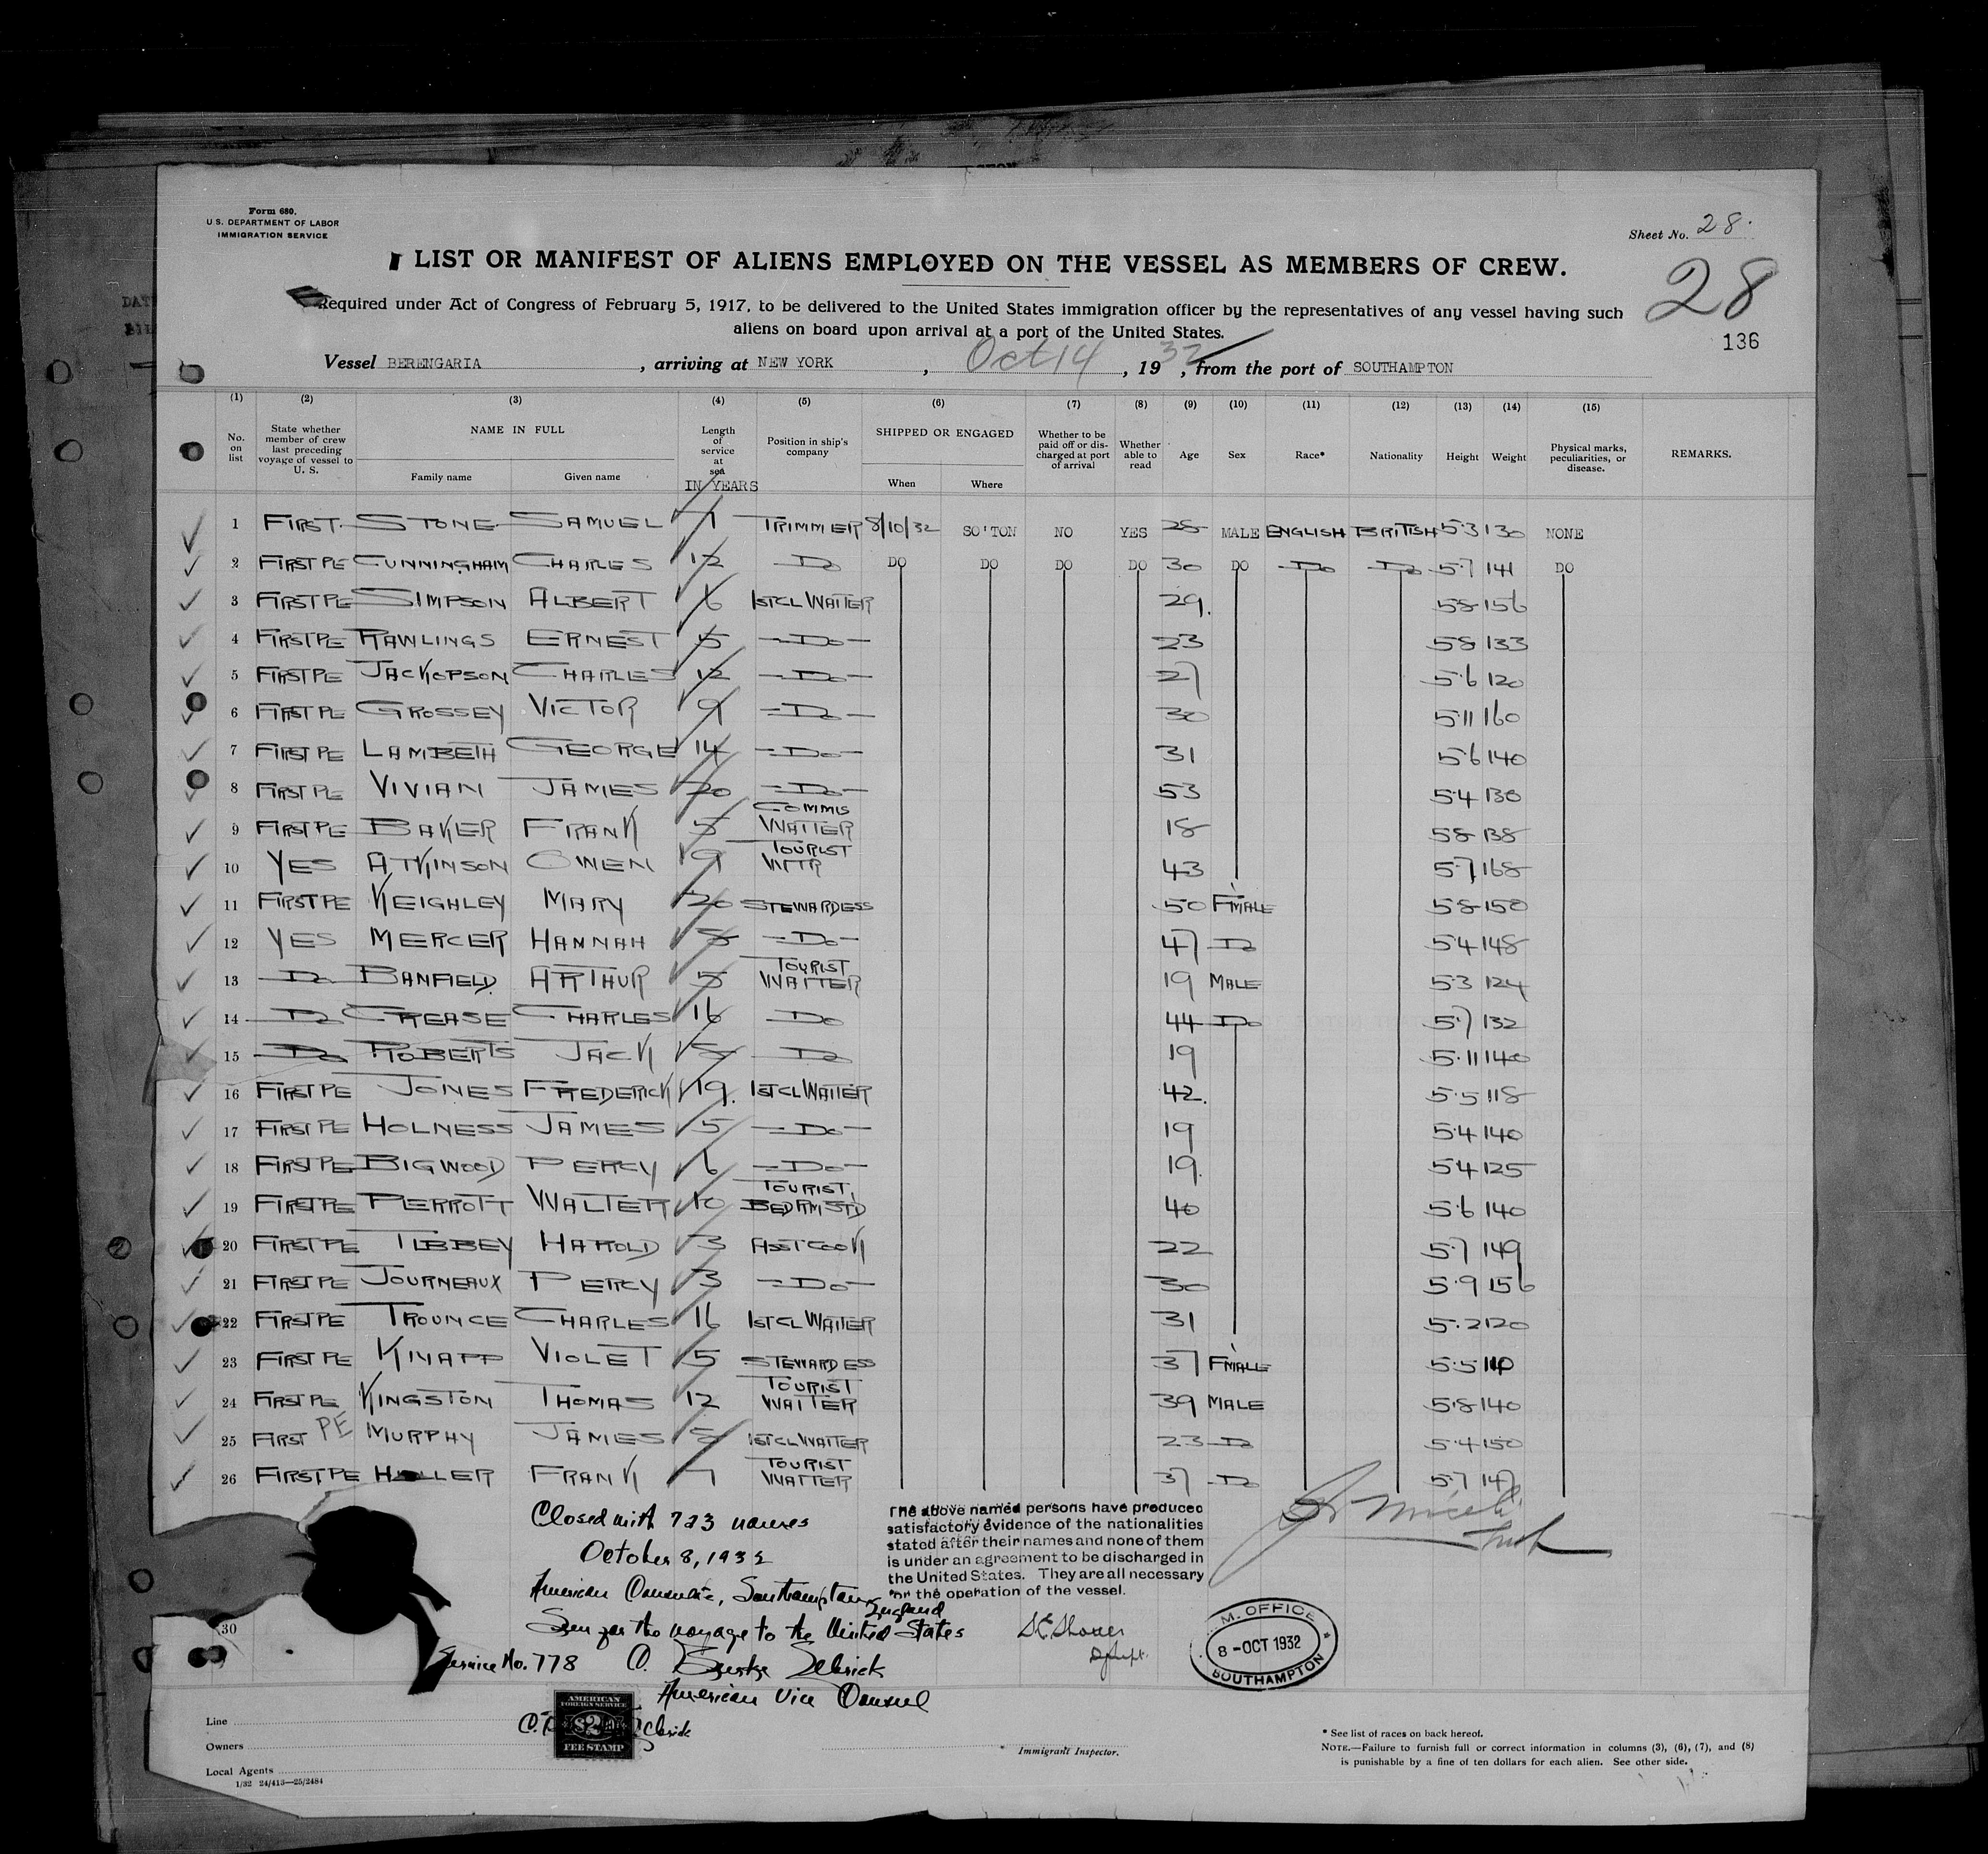 Form 680.
U.S. DEPARTMENT OF LABOR
IMMIGRATION SERVICE
Sheet No. 28.
LIST OR MANIFEST OF ALIENS EMPLOYED ON THE VESSEL AS MEMBERS OF CREW.
28
Required under Act of Congress of February 5, 1917, to be delivered to the United States immigration officer by the representatives of any vessel having such
aliens on board upon arrival at a port of the United States.
136
Vessel BERENGARIA, arriving at NEW YORK, Oct 14, 1932, from the port of SOUTHAMPTON
(1) (2) (3) (4) (5) (6) (7) (8) (9) (10) (11) (12) (13) (14) (15)
No. on list
State whether member of crew last preceding voyage of vessel to U. S.
NAME IN FULL
Family name
Given name
Length of service at sea
IN YEARS
Position in ship's company
SHIPPED OR ENGAGED
When
Where
Whether to be paid off or discharged at port of arrival
Whether able to read
Age
Sex
Race*
Nationality
Height
Weight
Physical marks, peculiarities, or disease.
REMARKS.
1 FIRST. STONE SAMUEL 7 TRIMMER 8/10/32 SO'TON NO YES 28 MALE ENGLISH BRITISH 5·3 130 NONE
2 FIRST PE CUNNINGHAM CHARLES 12 DO DO DO DO DO 30 DO DO DO 5·7 141 DO
3 FIRST PE SIMPSON ALBERT 6 1ST CL WAITER 29. 5·8 156
4 FIRST PE RAWLINGS ERNEST 5 DO 23 5·8 133
5 FIRST PE JACKOPSON CHARLES 12 DO 27 5·6 120
6 FIRST PE GROSSEY VICTOR 9 DO 30 5·11 160
7 FIRST PE LAMBETH GEORGE 14 DO 31 5·6 140
8 FIRST PE VIVIAN JAMES 20 DO 53 5·4 130
9 FIRST PE BAKER FRANK 5 COMMIS WAITER 18 5·8 138
10 YES ATKINSON OWEN 19 TOURIST WTR 43 5·7 168
11 FIRST PE KEIGHLEY MARY 20 STEWARDESS 50 FMALE 5·8 150
12 YES MERCER HANNAH 8 DO 47 DO 5·4 148
13 DO BANFIELD. ARTHUR 5 TOURIST WAITER 19 MALE 5·3 124
14 DO CREASE CHARLES 16 DO 44 DO 5·7 132
15 DO ROBERTS JACK 5 DO 19 5·11 140
16 FIRST PE JONES FREDERICK 19. 1ST CL WAITER 42. 5·5 118
17 FIRST PE HOLNESS JAMES 5 DO 19 5·4 140
18 FIRST PE BIGWOOD PERCY 6 DO 19. 5·4 125
19 FIRST PE PERROTT WALTER 10 TOURIST BEDRM STD 40 5·6 140
20 FIRST PE TIBBEY HAROLD 3 ASST COOK 22 5·7 149
21 FIRST PE JOURNEAUX PERCY 3 DO 30 5·9 156
22 FIRST PE TROUNCE CHARLES 16 1ST CL WAITER 31 5·2 120
23 FIRST PE KNAPP VIOLET 5 STEWARDESS 37 FMALE 5·5 110
24 FIRST PE KINGSTON THOMAS 12 TOURIST WAITER 39 MALE 5·8 140
25 FIRST PE MURPHY JAMES 5 1ST CL WAITER 23 DO 5·4 150
26 FIRST PE HELLER FRANK 7 TOURIST WAITER 37 DO 5·7 147
Closed with 723 names
October 8, 1932
American Consulate, Southampton, England
Seen for the voyage to the United States
Service No. 778
American Vice Consul
The above named persons have produced
satisfactory evidence of the nationalities
stated after their names and none of them
is under an agreement to be discharged in
the United States. They are all necessary
for the operation of the vessel.
M. OFFICE
8 - OCT 1932
SOUTHAMPTON
30
AMERICAN
FOREIGN SERVICE
$2
FEE STAMP
Line
Owners
Local Agents
1/32 24/413—25/2484
Immigrant Inspector.
* See list of races on back hereof.
NOTE.—Failure to furnish full or correct information in columns (3), (6), (7), and (8)
is punishable by a fine of ten dollars for each alien. See other side.